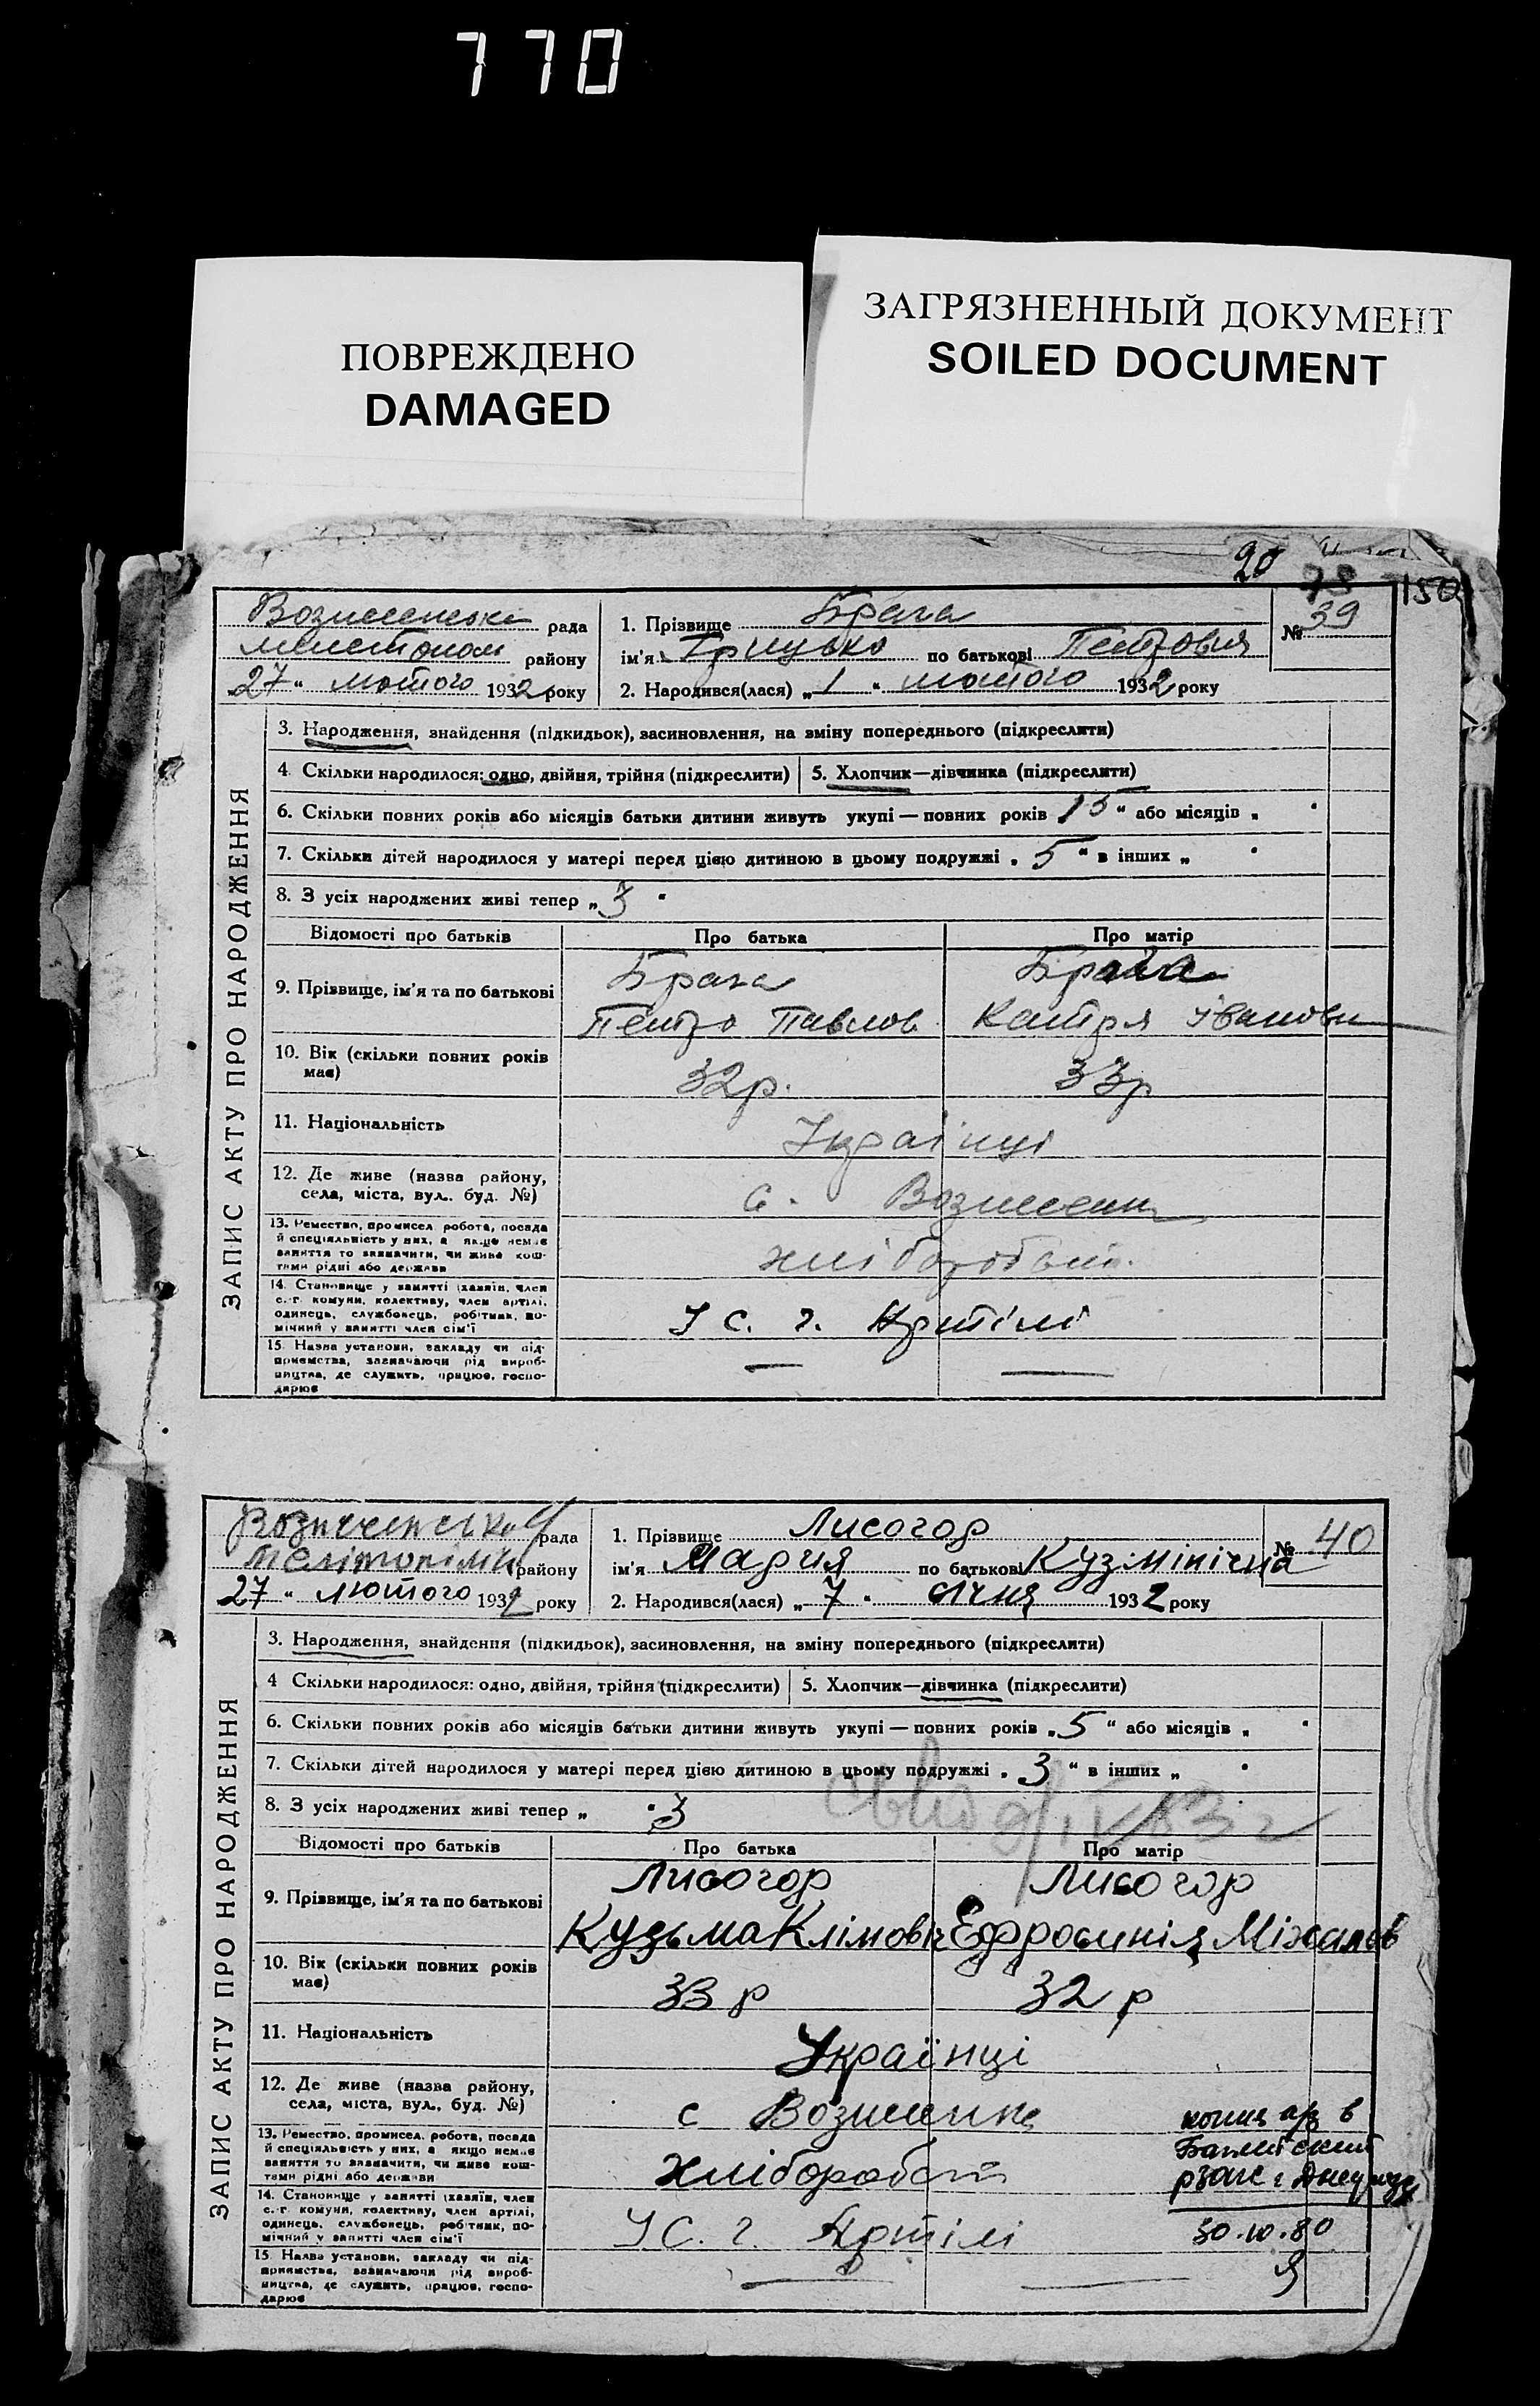 770
ПОВРЕЖДЕНО
DAMAGED
ЗАГРЯЗНЕННЫЙ ДОКУМЕНТ
SOILED DOCUMENT
20
150
рада
району
27 " лютого 1932 року
1. Прізвище Брага
ім'я Грицько по батькові Петрович
№ 39
2. Народився(лася) „ 1 " лютого 1932 року
ЗАПИС АКТУ ПРО НАРОДЖЕННЯ
3. Народження, знайдення (підкидьок), засиновлення, на зміну попереднього (підкреслити)
4. Скільки народилося: одно, двійня, трійня (підкреслити) 5. Хлопчик—дівчинка (підкреслити)
6. Скільки повних років або місяців батьки дитини живуть укупі — повних років 15 " або місяців „ "
7. Скільки дітей народилося у матері перед цією дитиною в цьому подружжі „ 5 " в інших „ "
8. З усіх народжених живі тепер „ 3 "
Відомості про батьків Про батька Про матір
9. Прізвище, ім'я та по батькові
Брага Брага
Петро Павлов Катря Іванов
10. Вік (скільки повних років має) 32 р. 33 р
11. Національність Українці
12. Де живе (назва району, села, міста, вул., буд. №) с.
13. Ремество, промисел, робота, посада й спеціяльність у них, а якщо немає заняття то зазначити, чи живе коштами рідні або держави
14. Становище у занятті (хазяїн, член с.-г. комуни, колективу, член артілі, одинець, службовець, робітник, помічний у занятті член сім'ї У С. г. Артілі
15. Назва установи, закладу чи підприємства, зазначаючи рід виробництва, де служить, працює, господарює — —
рада
району
27 " лютого 1932 року
1. Прізвище Лисогор
ім'я Мария по батькові Кузмінічна
№ 40
2. Народився(лася) „ 7 " січня 1932 року
ЗАПИС АКТУ ПРО НАРОДЖЕННЯ
3. Народження, знайдення (підкидьок), засиновлення, на зміну попереднього (підкреслити)
4 Скільки народилося: одно, двійня, трійня (підкреслити) 5. Хлопчик—дівчинка (підкреслити)
6. Скільки повних років або місяців батьки дитини живуть укупі — повних років „ 5 " або місяців „ "
7. Скільки дітей народилося у матері перед цією дитиною в цьому подружжі „ 3 " в інших „ "
8. З усіх народжених живі тепер „ " 3
Відомості про батьків Про батька Про матір
9. Прізвище, ім'я та по батькові
Лисогор Лисогор
Кузьма Клімовіч Ефросинія Міхалов
10. Вік (скільки повних років має) 33 р 32 р
11. Національність Українці
12. Де живе (назва району, села, міста, вул., буд. №) с
13. Ремество, промисел, робота, посада й спеціяльність у них, а якщо немає заняття то зазначити, чи живе коштами рідні або держави Хлібороботв
14. Становище у занятті (хазяїн, член с.-г. комуни, колективу, член артілі, одинець, службовець, робітник, помічний у занятті член сім'ї У С. г. Артілі
15. Назва установи, закладу чи підприємства, зазначаючи рід виробництва, де служить, працює, господарює — —
30.10.80